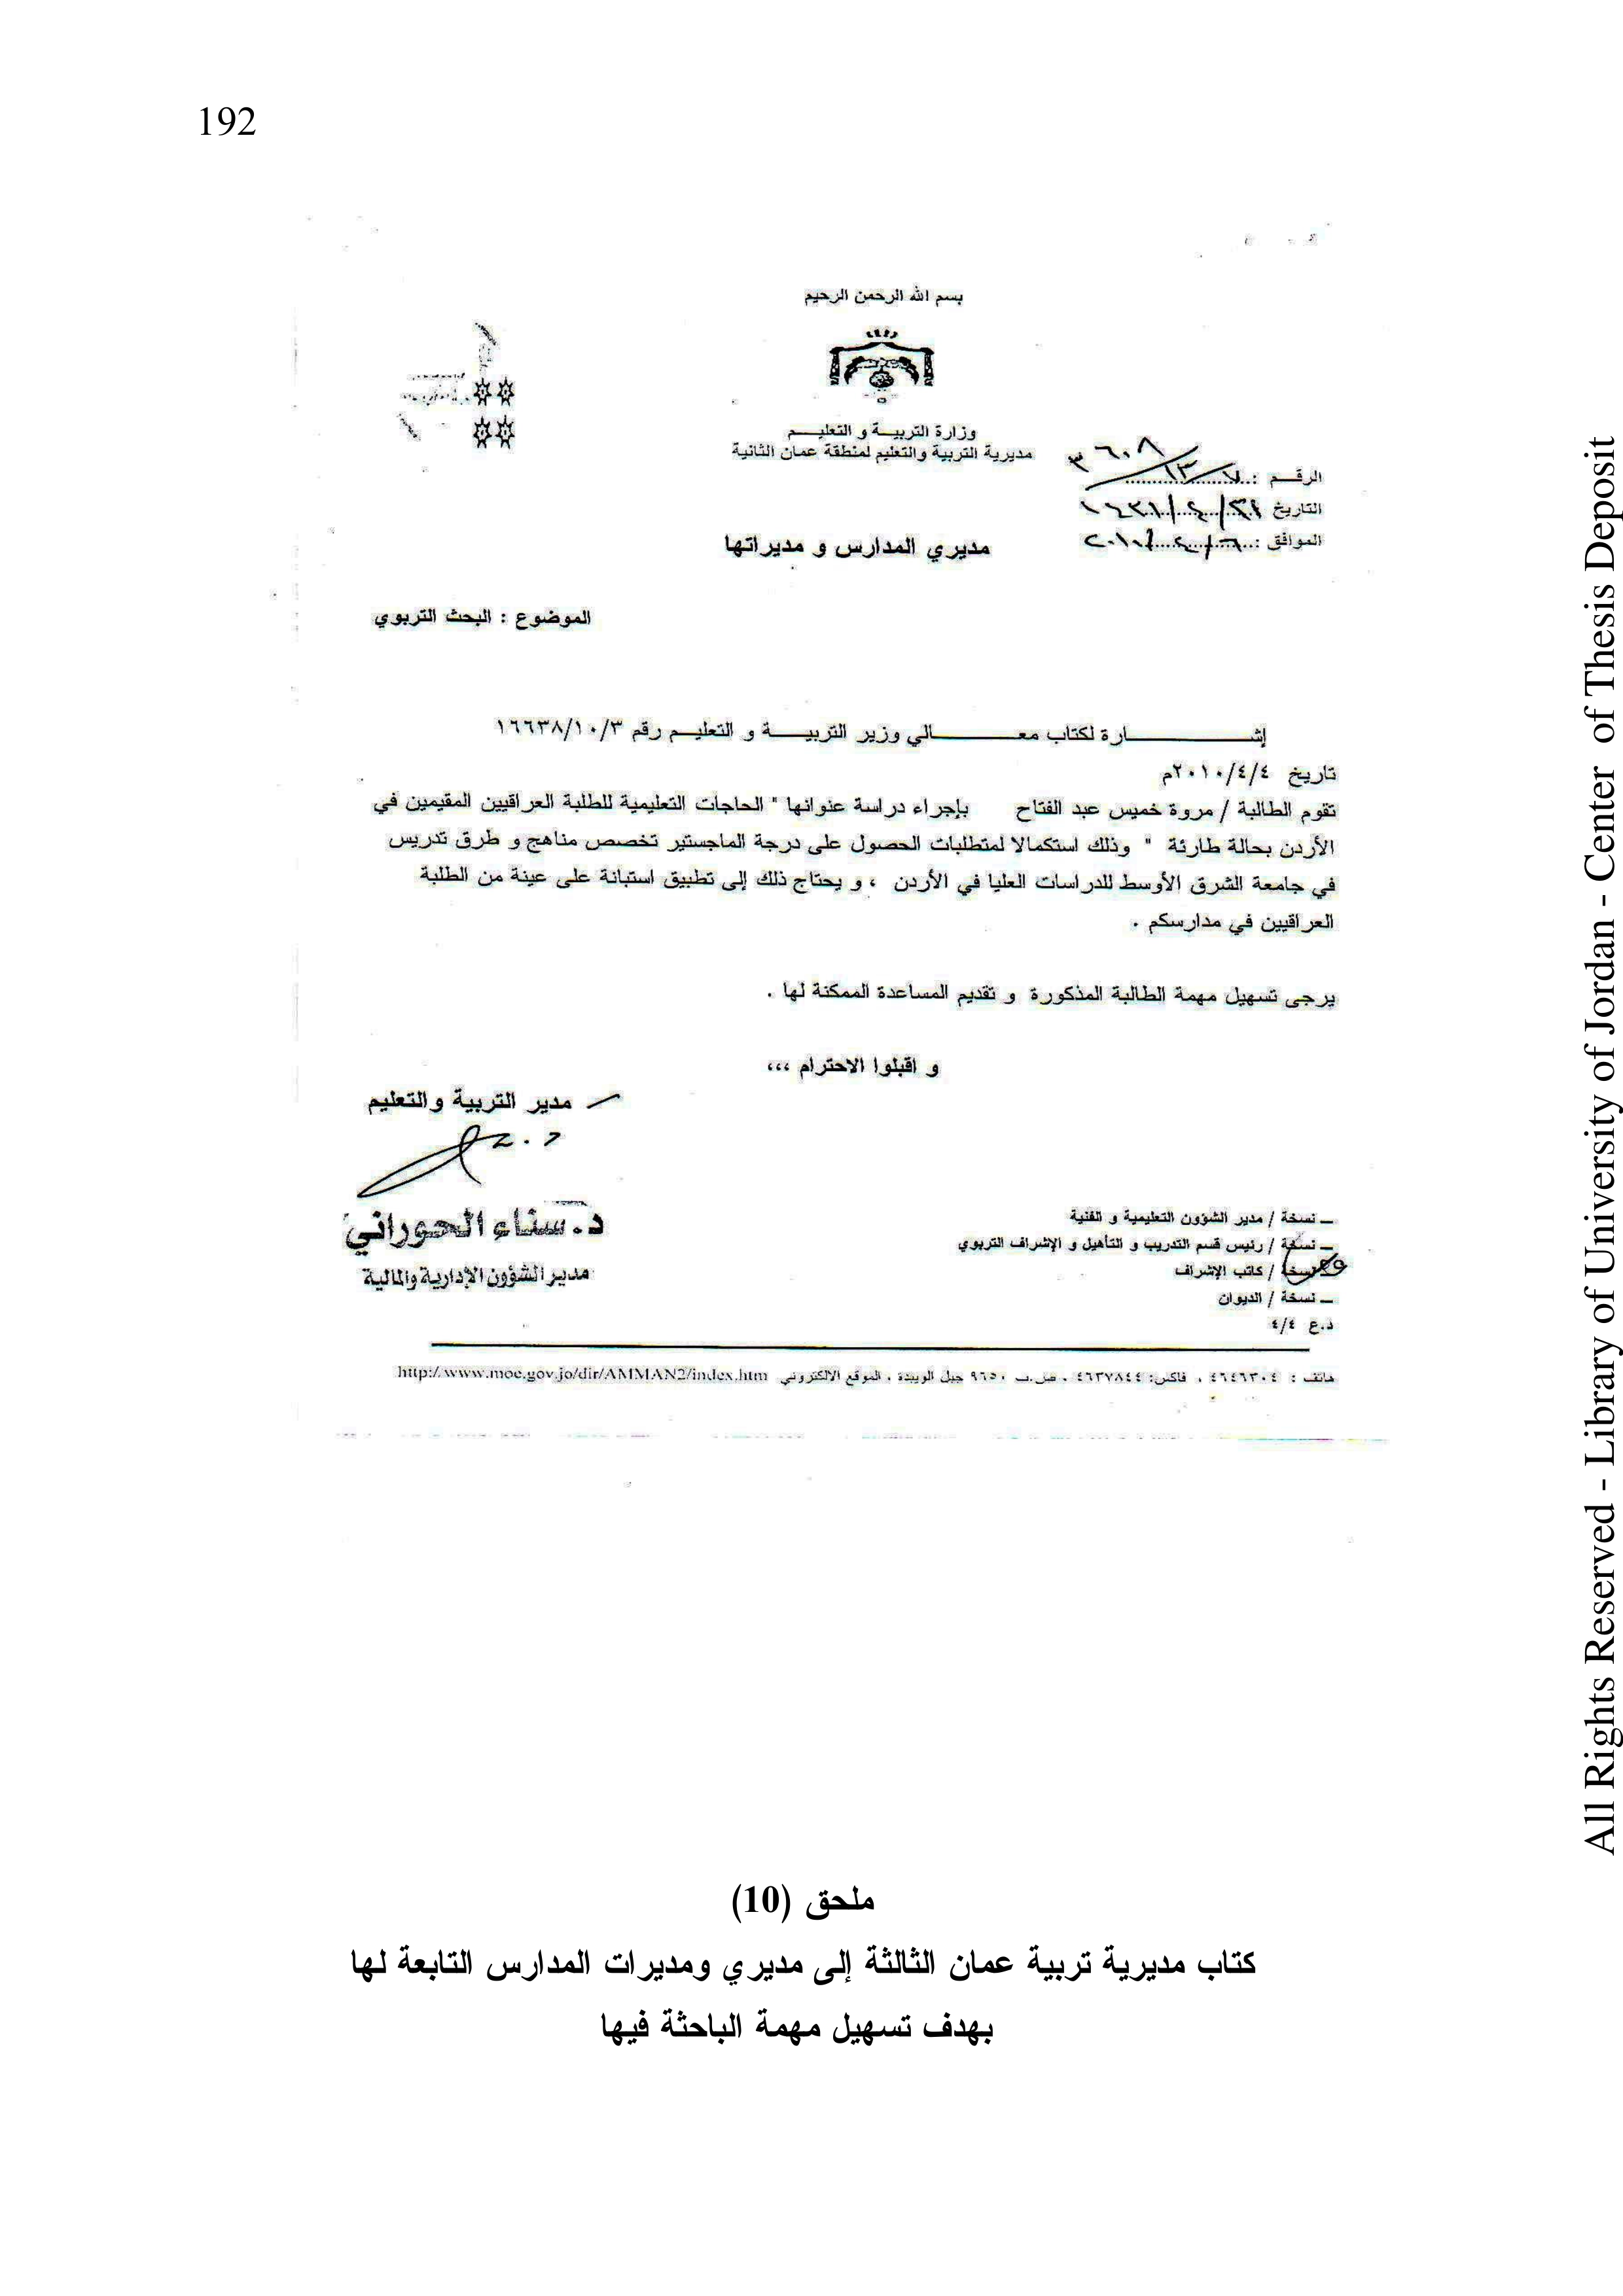 192
بسم الله الرحمن الرحيم
وزارة التربية و التعليم
مديرية التربية والتعليم لمنطقة عمان الثانية
الرقم :
التاريخ
الموافق :
مديري المدارس و مديراتها
الموضوع : البحث التربوي
إشارة لكتاب معالي وزير التربية و التعليم رقم ١٦٦٣٨/١٠/٣
تاريخ ٢٠١٠/٤/٤م
تقوم الطالبة / مروة خميس عبد الفتاح بإجراء دراسة عنوانها " الحاجات التعليمية للطلبة العراقيين المقيمين في
الأردن بحالة طارئة " وذلك استكمالا لمتطلبات الحصول على درجة الماجستير تخصص مناهج و طرق تدريس
في جامعة الشرق الأوسط للدراسات العليا في الأردن ، و يحتاج ذلك إلى تطبيق استبانة على عينة من الطلبة
العراقيين في مدارسكم .
يرجى تسهيل مهمة الطالبة المذكورة و تقديم المساعدة الممكنة لها .
و اقبلوا الاحترام ،،،
مدير التربية والتعليم
د. سناء الحوراني
مدير الشؤون الإدارية والمالية
ـ نسخة / مدير الشؤون التعليمية و الفنية
ـ نسخة / رئيس قسم التدريب و التأهيل و الإشراف التربوي
نسخة / كاتب الإشراف
ـ نسخة / الديوان
د.ع ٤/٤
هاتف : ٤٦٤٦٣٠٤ ، فاكس: ٤٦٣٧٨٤٤ ، ص.ب ٩٦٥٠ جبل الويبدة ، الموقع الالكتروني http://www.moe.gov.jo/dir/AMMAN2/index.htm
ملحق (10)
كتاب مديرية تربية عمان الثالثة إلى مديري ومديرات المدارس التابعة لها
بهدف تسهيل مهمة الباحثة فيها
All Rights Reserved - Library of University of Jordan - Center of Thesis Deposit